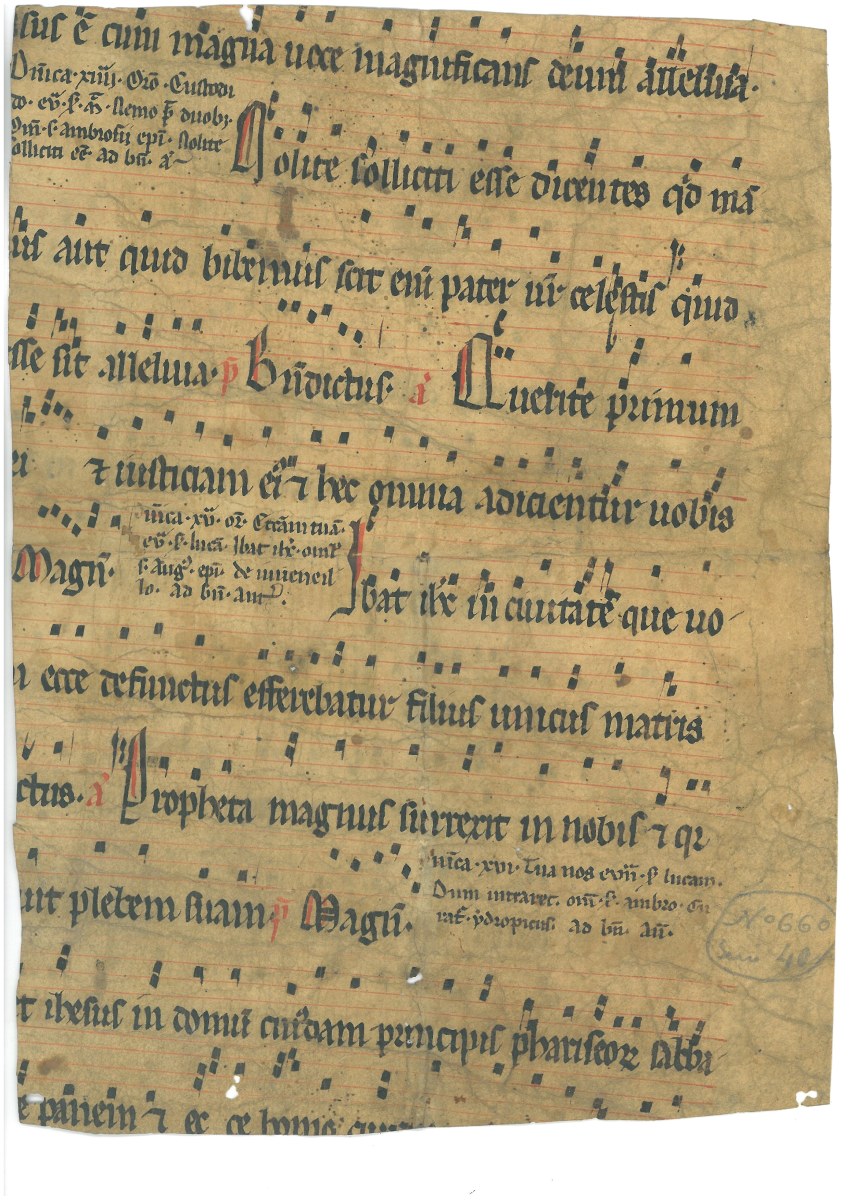 sus ē cum magna uoce magnificans deum alleluia·
Dn̄ica·xiiij·Orō·Custodi
do·eu̅·s̄·m̄·Nemo p̄t duobꝫ·
Om̄·s̄·ambrosii epī·Nolite
solliciti eē·ad bn̄·a
Nolite solliciti esse dicentes qd mā
aut quid bibemus scit enī pater ur̄ celestis quid
esse sit alleluia·p̄ Bn̄dictus·a Querite primum
ei ⁊ iusticiam eī ⁊ hec omnia adicientur uobis
Magn̄·
nīca·xv·or̄·Ecclām tuā·
eu̅·s̄·lucā·Ibat ihc̄·om̄
s̄·Aug·epī·de iuuenil
lo·ad bn̄·ant
Ibat ihc̄ in ciuitatē que uo
ecce defunctus efferebatur filius unicus matris
ctus·a Propheta magnus surrexit in nobis ⁊ qi
plebem suam·p̄ Magn̄·
nīca·xvi·Tua nos eu̅·s̄·lucam·
Dum intraret·om̄·s̄·ambro·
ydropicus·ad bn̄·an̄·
N° 660
et ihesus in domū cuidam principis phariseoꝝ sabba
e panem ⁊ ec ce homo